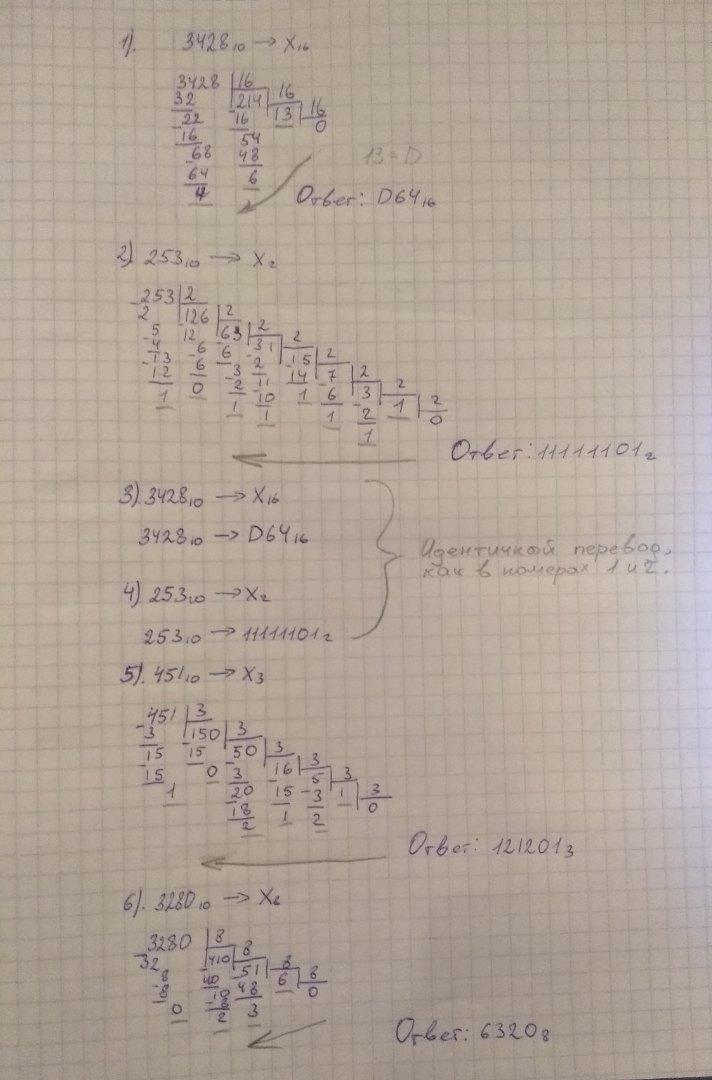 1). 3428₁₀ → X₁₆
3428 | 16
32 214 | 16
22 16 13 | 16
16 54 0
68 48 13 = D
64 6
4
Ответ: D64₁₆
2) 253₁₀ → X₂
253 | 2
2 126 | 2
5 12 63 | 2
4 6 6 31 | 2
13 6 3 2 15 | 2
12 0 2 11 14 7 | 2
1 1 10 1 6 3 | 2
1 1 2 1 | 2
1 0
Ответ: 11111101₂
3). 3428₁₀ → X₁₆
3428₁₀ → D64₁₆
4) 253₁₀ → X₂
253₁₀ → 11111101₂
Идентичный перевод,
как в номерах 1 и 2.
5). 451₁₀ → X₃
451 | 3
3 150 | 3
15 15 50 | 3
15 0 3 16 | 3
1 20 15 5 | 3
18 1 3 1 | 3
2 2 0
Ответ: 121201₃
6). 3280₁₀ → X₈
3280 | 8
32 410 | 8
8 40 51 | 8
8 10 48 6 | 8
0 8 3 0
2
Ответ: 6320₈